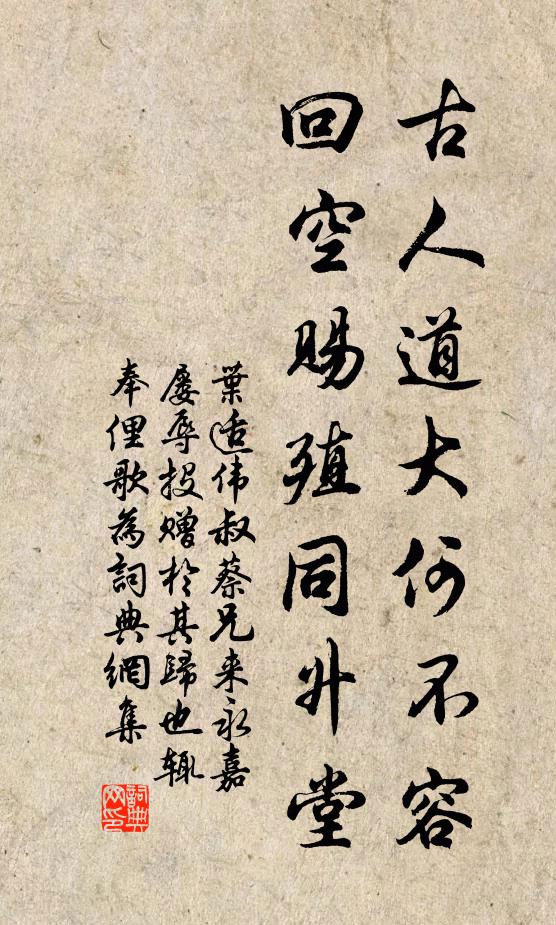 古人道大何不容
回空賜殖同升堂
葉适伟叔蔡兄来永嘉
屡辱投赠於其歸也輒
奉俚歌為詞典網集
詞典网印